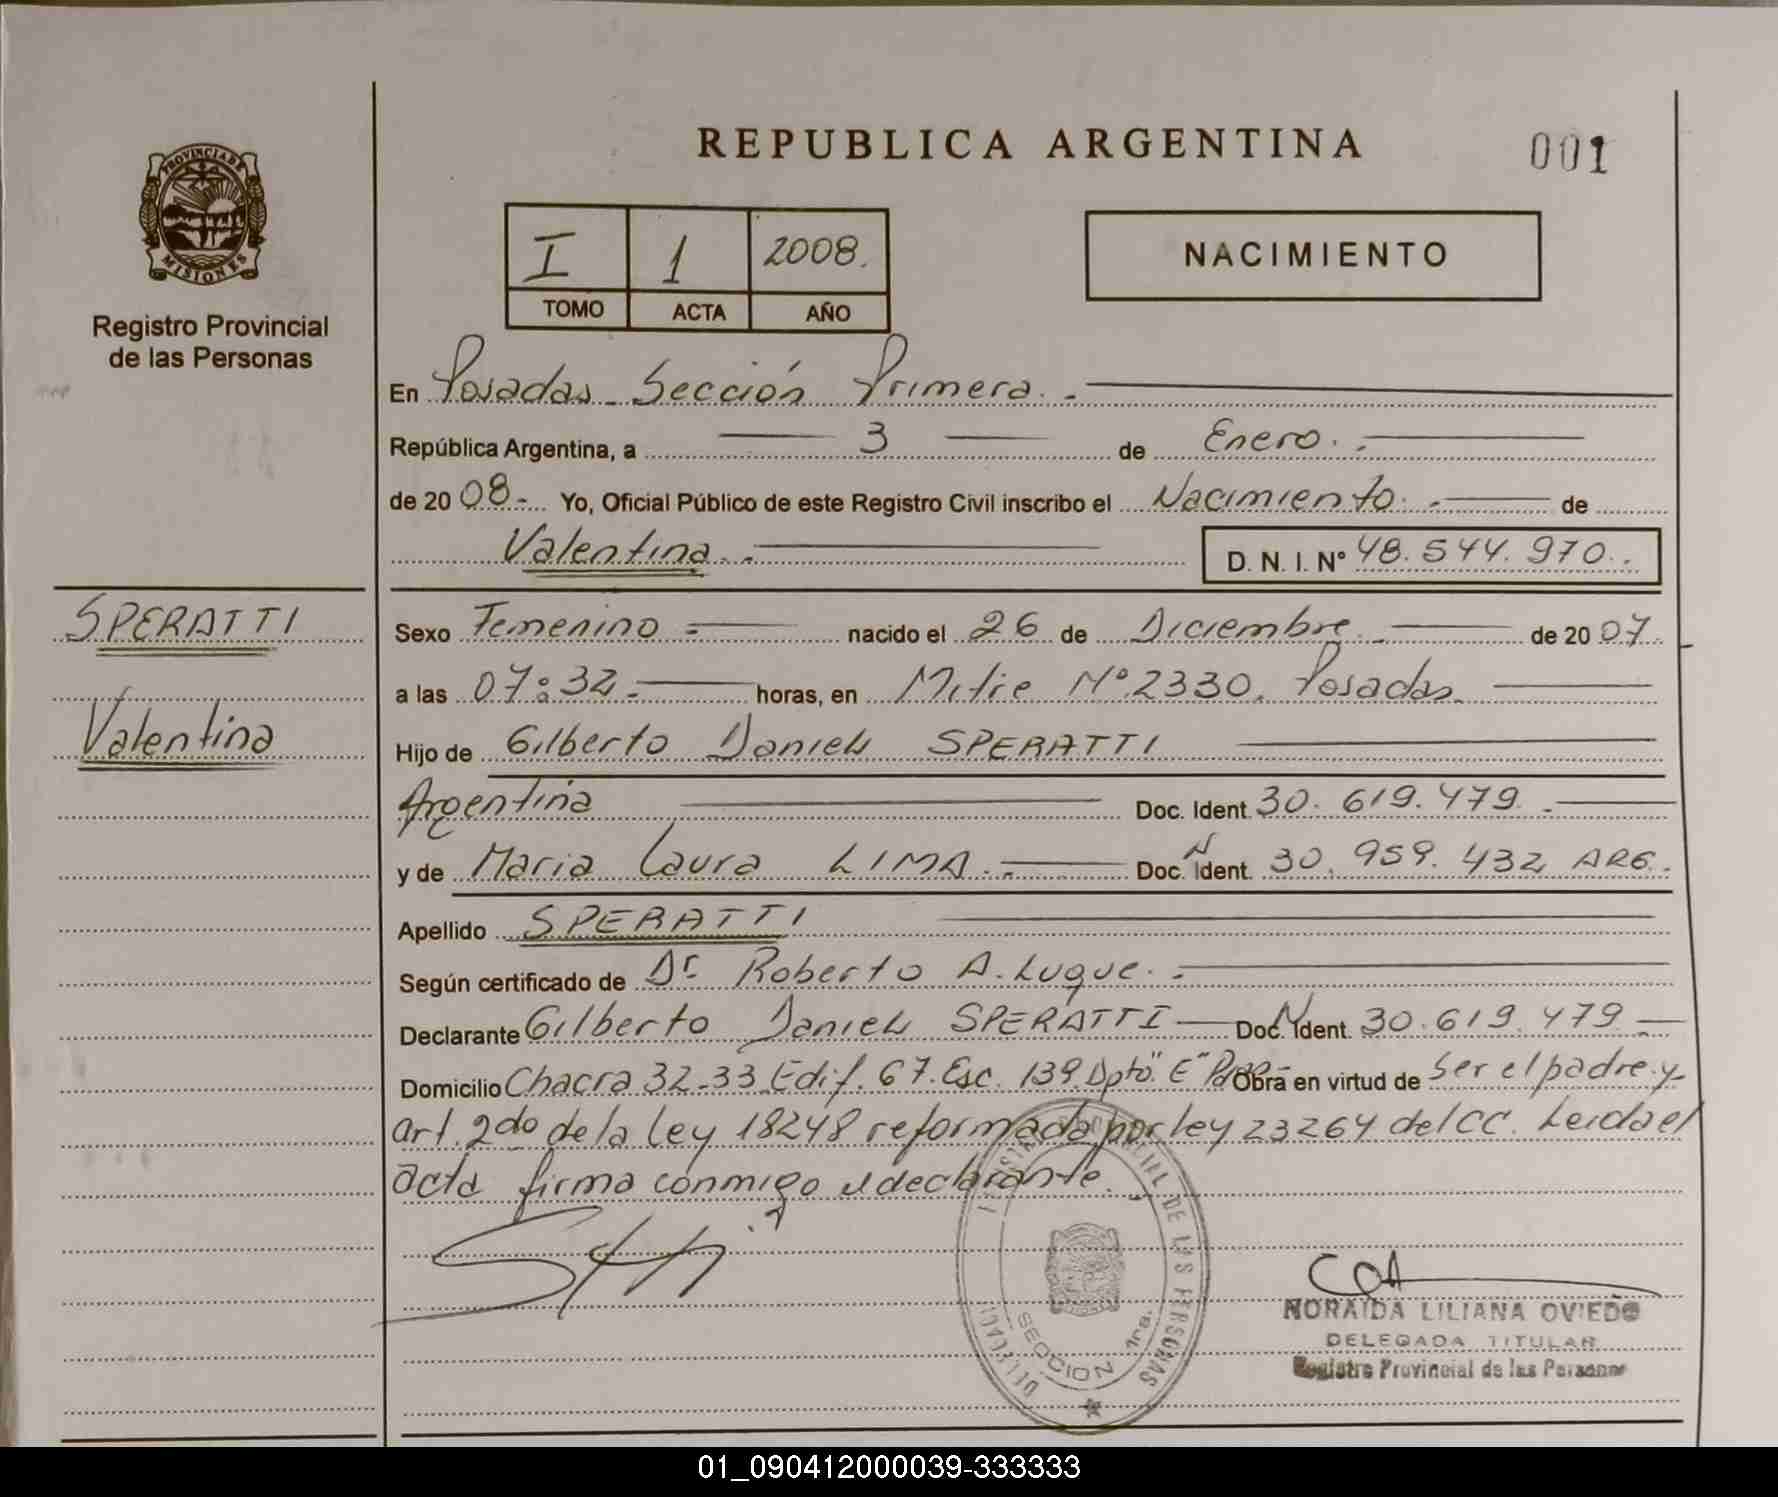 REPUBLICA ARGENTINA
001
PROVINCIA DE
MISIONES
Registro Provincial
de las Personas
I 1 2008.
TOMO ACTA AÑO
NACIMIENTO
En Posadas - Sección Primera. -
República Argentina, a 3 de Enero. -
de 20 08.- Yo, Oficial Público de este Registro Civil inscribo el Nacimiento. - de
Valentina. - D. N. I. Nº 48.544.970. -
SPERATTI
Valentina
Sexo Femenino - nacido el 26 de Diciembre - de 20 07
a las 07:32.- horas, en Mitre Nº 2330. Posadas.
Hijo de Gilberto Daniel SPERATTI
Argentina Doc. Ident. 30.619.479 -
y de Maria Laura LIMA. - Doc. N Ident. 30.959.432 ARG. -
Apellido SPERATTI
Según certificado de Dr. Roberto A. Luque. -
Declarante Gilberto Daniel SPERATTI - Doc. N Ident. 30.619.479 -
Domicilio Chacra 32-33 Edif. 67. Esc. 139 Dpto "E" Obra en virtud de ser el padre y
art. 2do de la ley 18248 reformada por ley 23264 del CC. Leida el
acta firma conmigo el declarante.
REGISTRO PROVINCIAL DE LAS PERSONAS
SECCION 1ra.
NORAIDA LILIANA OVIEDO
DELEGADA TITULAR
Registro Provincial de las Personas
01_090412000039-333333